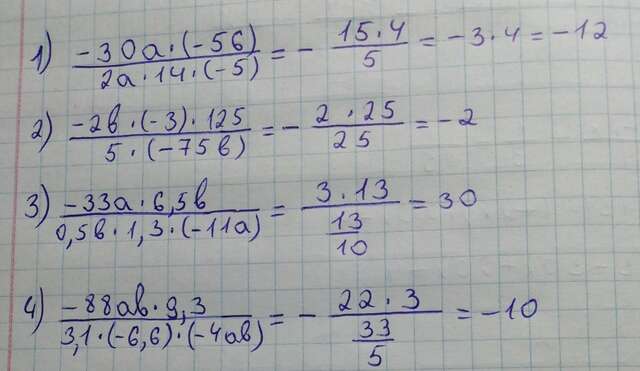 1) \frac{-30a·(-56)}{2a·14·(-5)} = - \frac{15·4}{5} = -3·4 = -12
2) \frac{-2в·(-3)·125}{5·(-75в)} = - \frac{2·25}{25} = -2
3) \frac{-33a·6,5в}{0,5в·1,3·(-11a)} = \frac{3·13}{\frac{13}{10}} = 30
4) \frac{-88aв·9,3}{3,1·(-6,6)·(-4aв)} = - \frac{22·3}{\frac{33}{5}} = -10